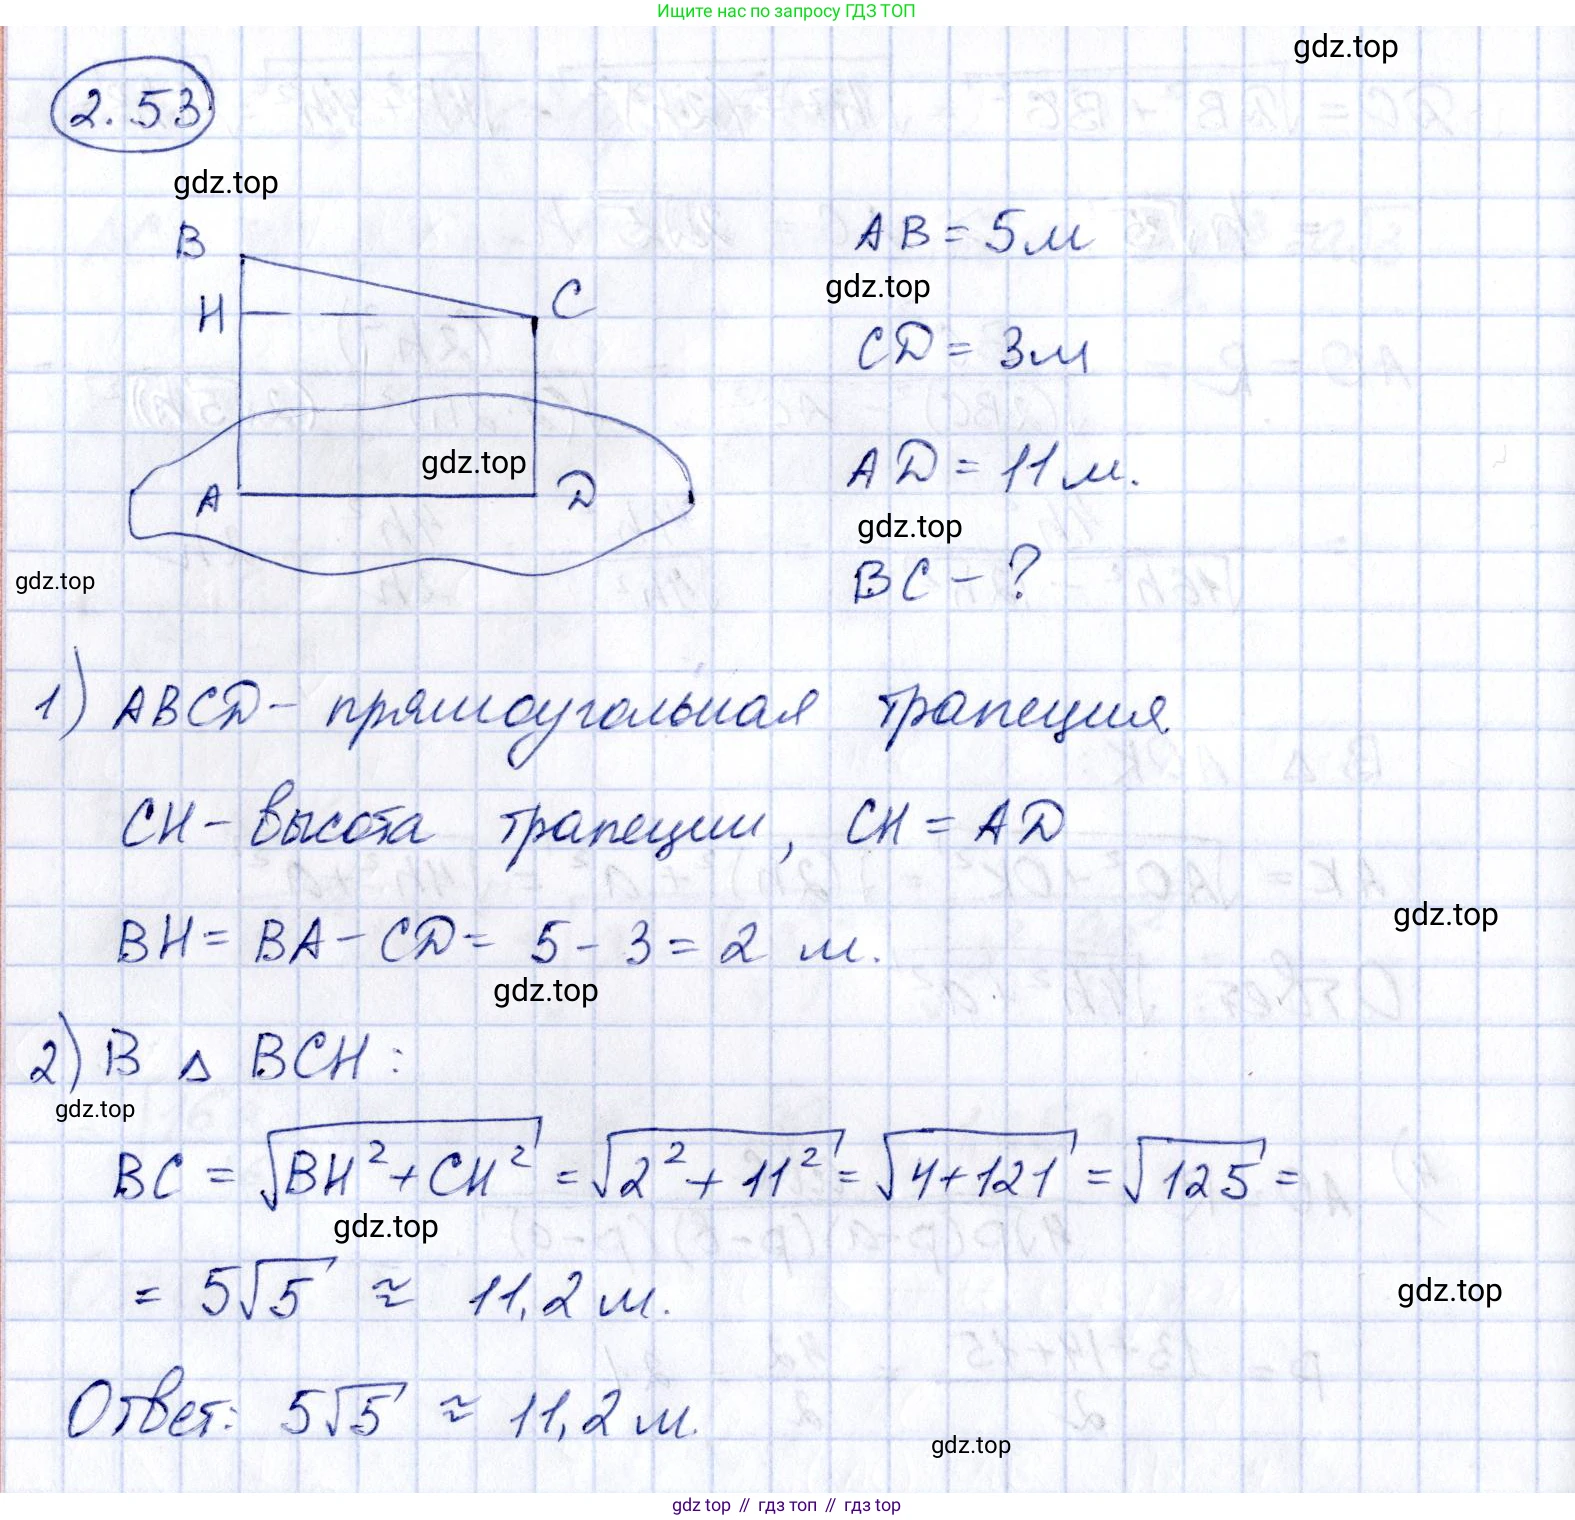 Ищите нас по запросу ГДЗ ТОП
gdz.top
2.53
gdz.top
B
AB = 5м
gdz.top
H
C
CD = 3м
gdz.top
A
D
AD = 11м.
gdz.top
BC - ?
gdz.top
1) ABCD - прямоугольная трапеция
CH - высота трапеции, CH = AD
gdz.top
BH = BA - CD = 5 - 3 = 2 м.
gdz.top
2) В △ BCH:
gdz.top
BC = √BH² + CH² = √2² + 11² = √4 + 121 = √125 =
gdz.top
= 5√5 ≈ 11,2 м.
gdz.top
Ответ: 5√5 ≈ 11,2 м.
gdz.top
gdz top // гдз топ // гдз top